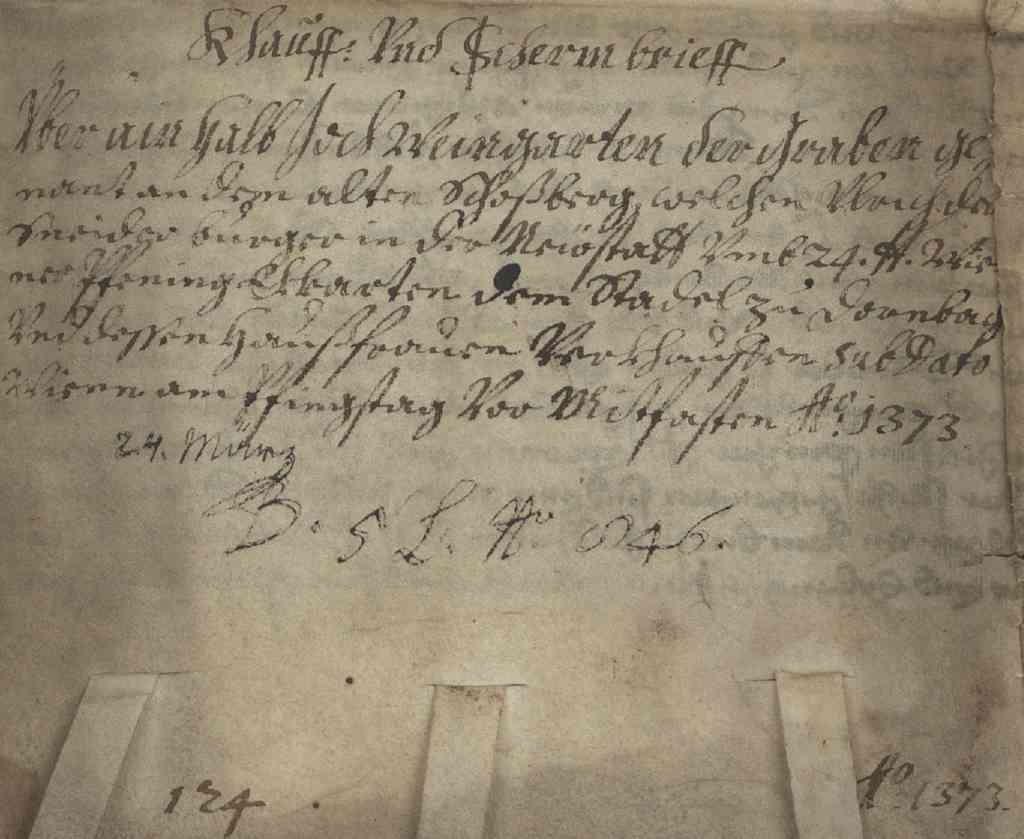 Khauff: Vnd Schermbrieff
Vber ain halb Joch Weingarten der Graben ge=
nant an dem alten Schoßberg, welchen Vlrich der
Sneider burger in der Neüostatt Vmb 24. ℔. Wie=
ner Pfening Ekharten dem Stadel zu Dornbach
Vnd dessen Haußfrauen Verkhauffen sub Dato
Wienn am Pfingstag Vor Mitfasten Ao. 1373
24. März
B. 5 L. No 846.
124
Ao. 1373.